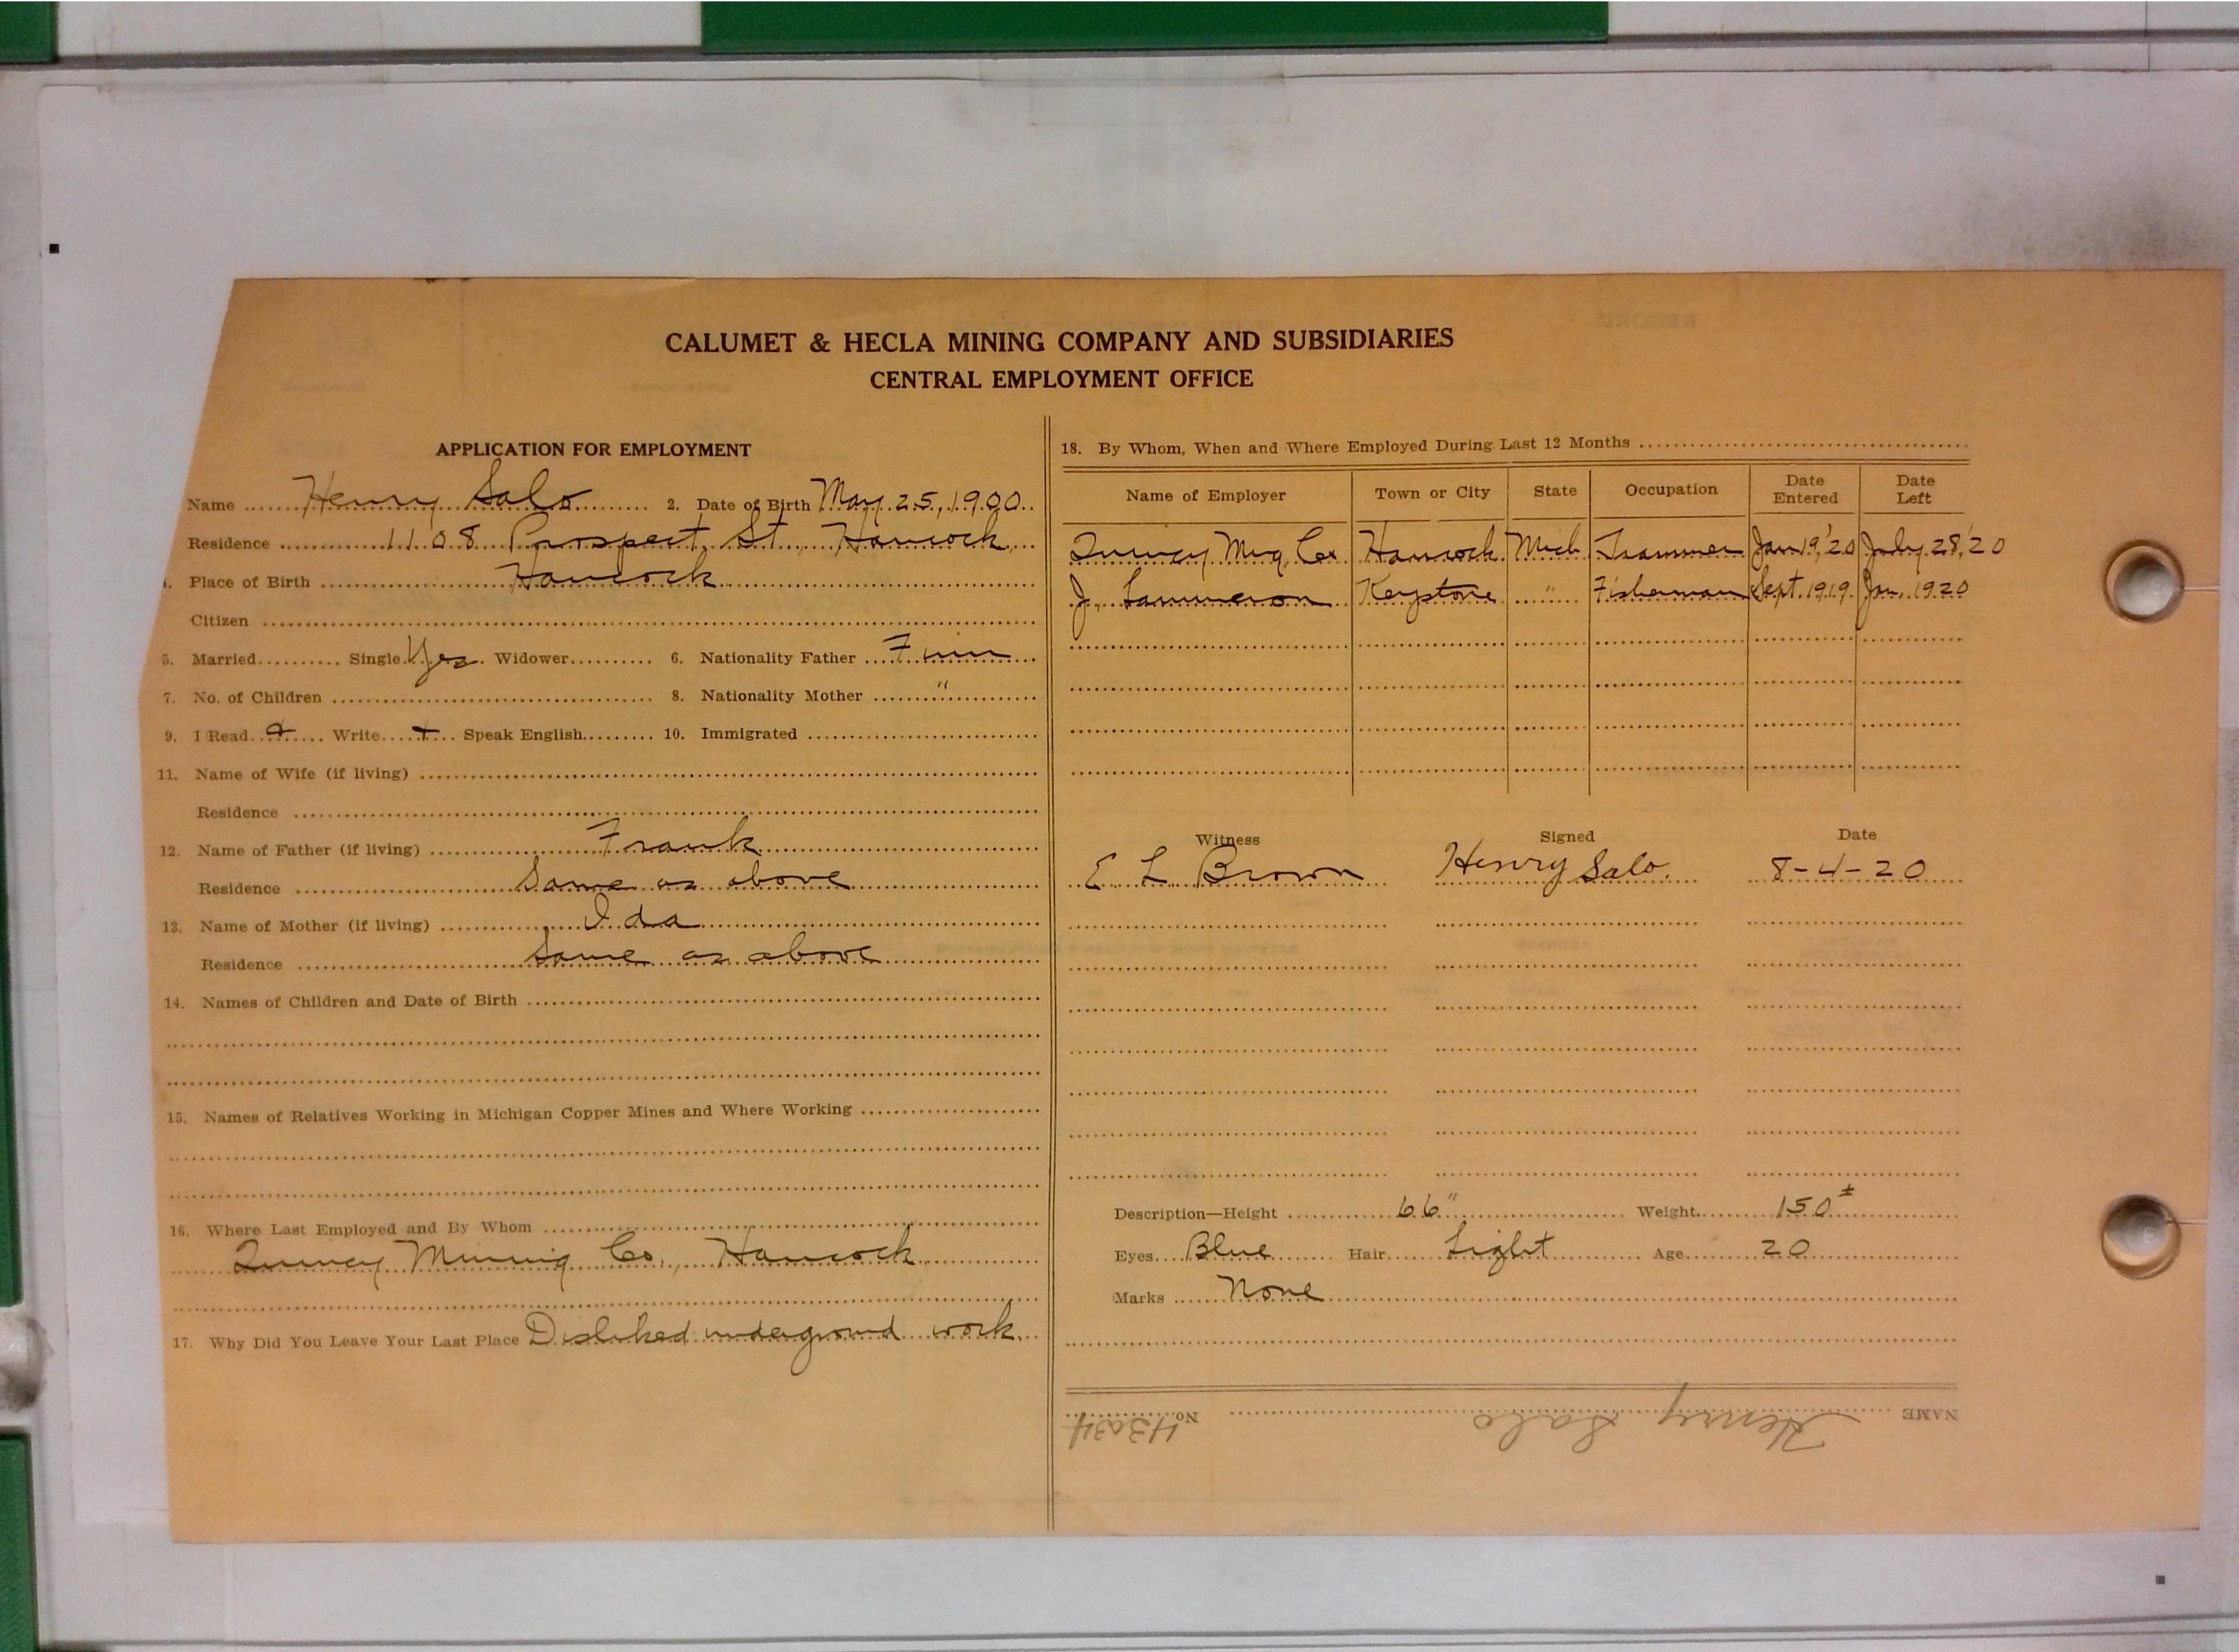 CALUMET & HECLA MINING COMPANY AND SUBSIDIARIES
CENTRAL EMPLOYMENT OFFICE
APPLICATION FOR EMPLOYMENT
Name Henry Salo 2. Date of Birth May 25, 1900
Residence 1108 Prospect St., Hancock
Place of Birth Hancock
Citizen
5. Married Single Yes Widower 6. Nationality Father Finn
7. No. of Children 8. Nationality Mother "
9. I Read Write Speak English 10. Immigrated
11. Name of Wife (if living)
Residence
12. Name of Father (if living) Frank
Residence Same as above
13. Name of Mother (if living) Ida
Residence Same as above
14. Names of Children and Date of Birth
15. Names of Relatives Working in Michigan Copper Mines and Where Working
16. Where Last Employed and By Whom
Quincy Mining Co., Hancock
17. Why Did You Leave Your Last Place Disliked underground work
18. By Whom, When and Where Employed During Last 12 Months
Name of Employer Town or City State Occupation Date Entered Date Left
Quincy Mng Co. Hancock Mich Trammer Jan 19, '20 July 28, '20
J. Keystone " Fisherman Sept. 1919 Jan. 1920
Witness Signed Date
E L Brown Henry Salo. 8-4-20
Description—Height 66" Weight 150
Eyes Blue Hair Light Age 20
Marks None
NAME Henry Salo No.